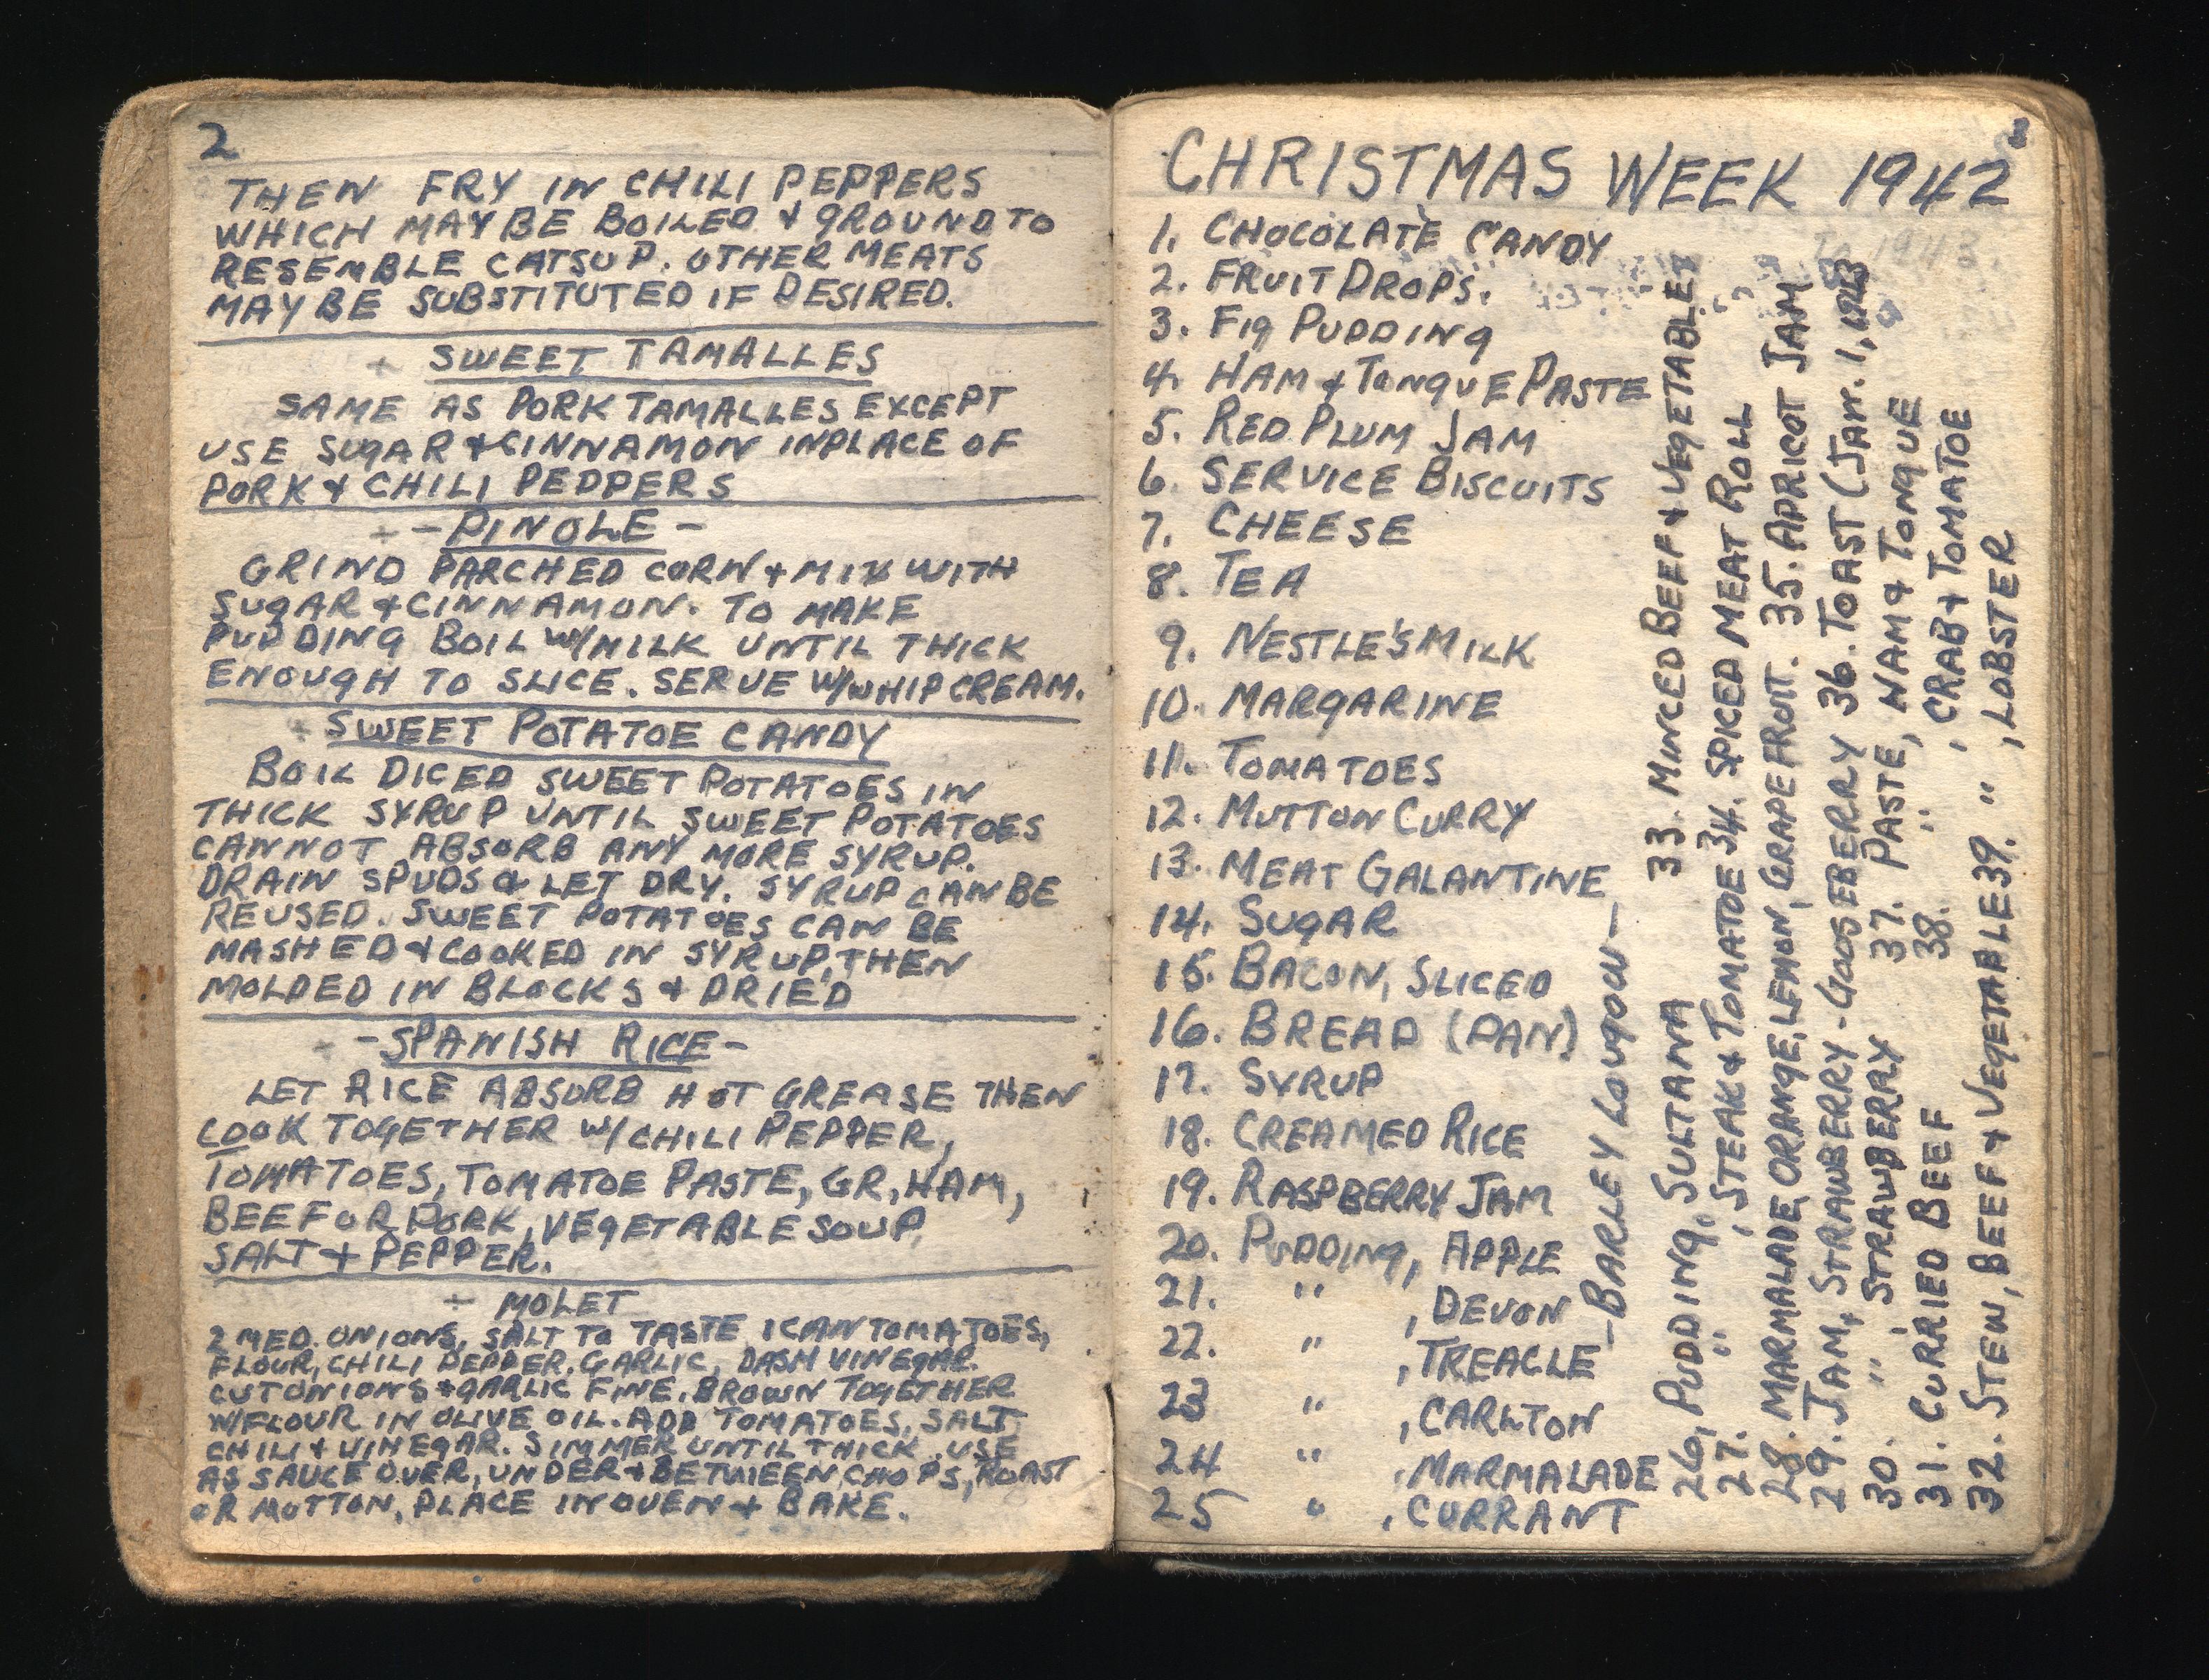 2
THEN FRY IN CHILI PEPPERS
WHICH MAY BE BOILED & GROUND TO
RESEMBLE CATSUP. OTHER MEATS
MAY BE SUBSTITUTED IF DESIRED.
SWEET TAMALLES
SAME AS PORK TAMALLES EXCEPT
USE SUGAR & CINNAMON INPLACE OF
PORK & CHILI PEPPERS
- PINOLE -
GRIND PARCHED CORN & MIX WITH
SUGAR & CINNAMON. TO MAKE
PUDDING BOIL W/MILK UNTIL THICK
ENOUGH TO SLICE. SERVE W/WHIP CREAM.
SWEET POTATOE CANDY
BOIL DICED SWEET POTATOES IN
THICK SYRUP UNTIL SWEET POTATOES
CANNOT ABSORB ANY MORE SYRUP.
DRAIN SPUDS & LET DRY. SYRUP CAN BE
REUSED. SWEET POTATOES CAN BE
MASHED & COOKED IN SYRUP, THEN
MOLDED IN BLOCKS & DRIED
- SPANISH RICE -
LET RICE ABSORB HOT GREASE THEN
COOK TOGETHER W/CHILI PEPPER,
TOMATOES, TOMATOE PASTE, GR, HAM,
BEEF OR PORK, VEGETABLE SOUP
SALT & PEPPER.
- MOLET
2 MED. ONIONS, SALT TO TASTE 1 CAN TOMATOES,
FLOUR, CHILI PEPPER, GARLIC, DASH VINEGAR.
CUT ONIONS & GARLIC FINE. BROWN TOGETHER
W/FLOUR IN OLIVE OIL. ADD TOMATOES, SALT
CHILI & VINEGAR. SIMMER UNTIL THICK. USE
AS SAUCE OVER, UNDER & BETWEEN CHOPS, ROAST
OR MUTTON, PLACE IN OVEN & BAKE.
CHRISTMAS WEEK 1942
1. CHOCOLATE CANDY
2. FRUIT DROPS.
3. FIG PUDDING
4. HAM & TONGUE PASTE
5. RED PLUM JAM
6. SERVICE BISCUITS
7. CHEESE
8. TEA
9. NESTLE'S MILK
10. MARGARINE
11. TOMATOES
12. MUTTON CURRY
13. MEAT GALANTINE
14. SUGAR
15. BACON, SLICED
16. BREAD (PAN)
17. SYRUP
18. CREAMED RICE
19. RASPBERRY JAM
20. PUDDING, APPLE
21. " , DEVON
22. " , TREACLE
23 " , CARLTON
24 " , MARMALADE
25 " , CURRANT
- BARLEY LOUGOW -
26, PUDDING, SULTANA 33. MINCED BEEF & VEGETABLES
27. " , STEAK & TOMATOE 34. SPICED MEAT ROLL
28. MARMALADE, ORANGE, LEMON, GRAPEFRUIT. 35. APRICOT JAM
29. JAM, STRAWBERRY-GOOSEBERRY 36. TOAST (JAN. 1, 1943
30. " , STRAWBERRY 37. PASTE, HAM & TONGUE
31. CURRIED BEEF 38. " , CRAB & TOMATOE
32. STEW, BEEF & VEGETABLE 39. " , LOBSTER